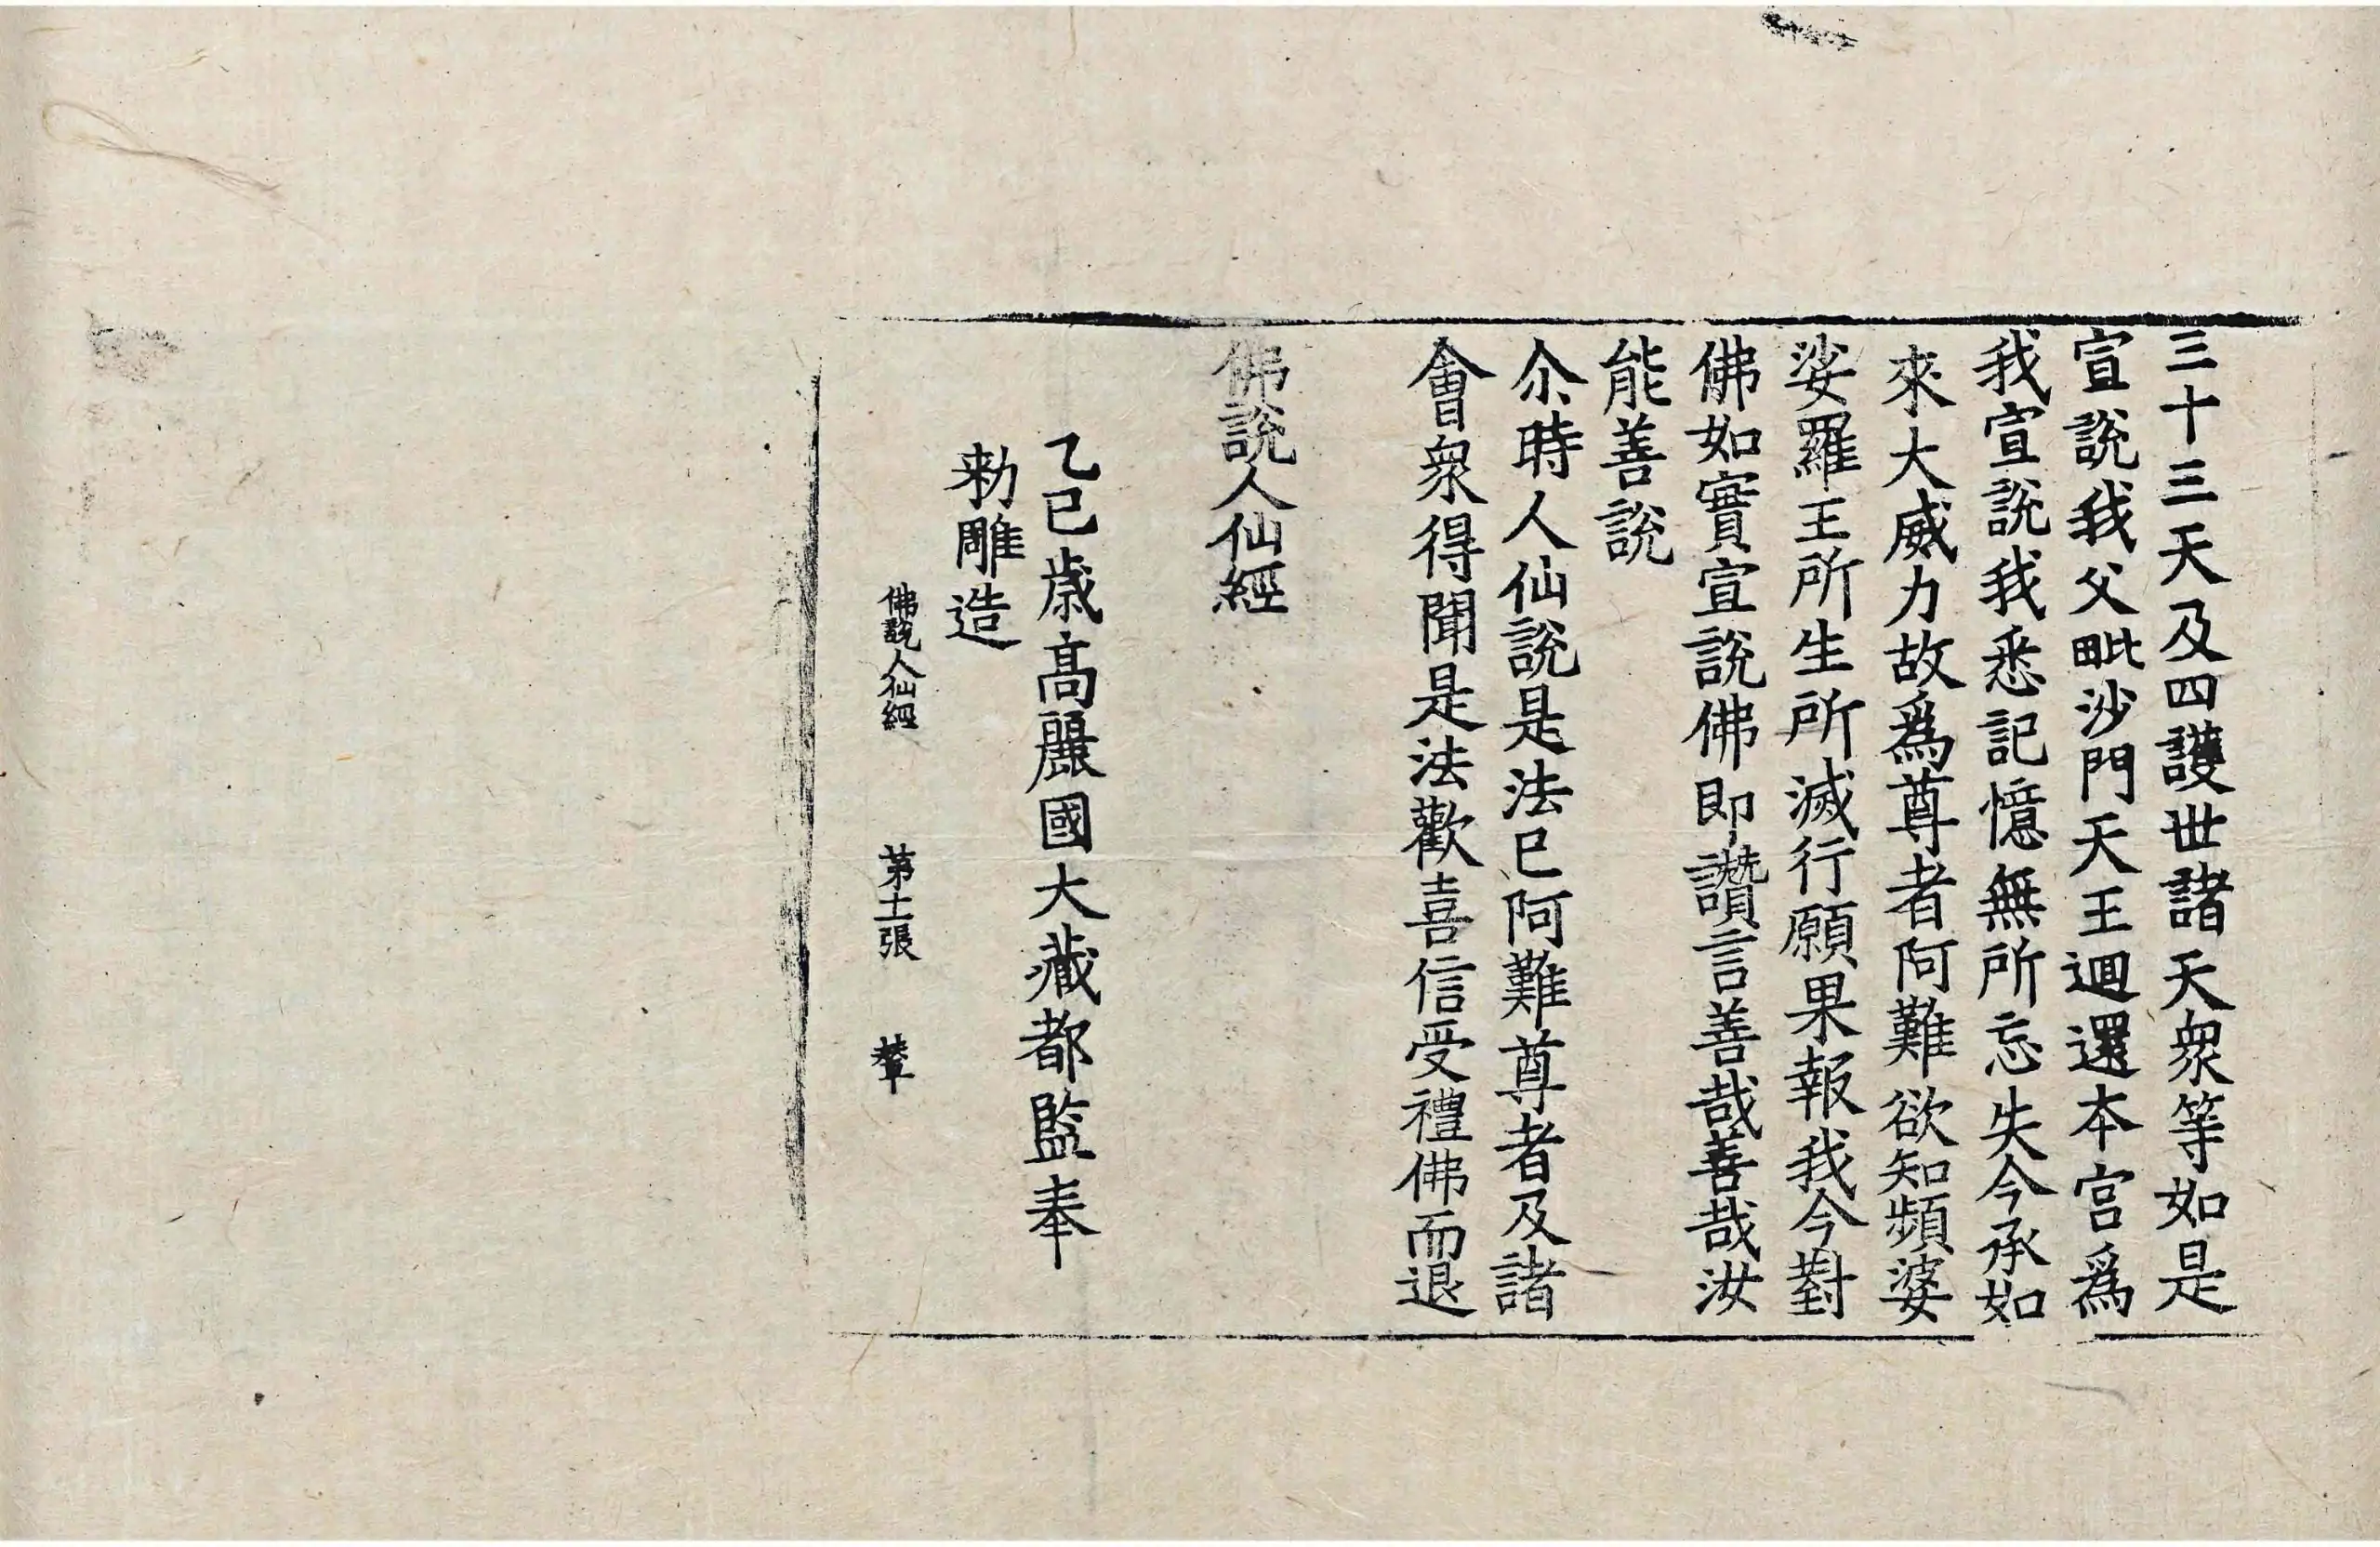 三十三天及四護世諸天衆等如是
宣說我父毗沙門天王迴還本宮爲
我宣說我悉記憶無所忘失今承如
來大威力故爲尊者阿難欲知頻婆
娑羅王所生所滅行願果報我今對
佛如實宣說佛即讚言善哉善哉汝
能善說
尒時人仙說是法已阿難尊者及諸
會衆得聞是法歡喜信受禮佛而退
佛說人仙經
乙巳歲高麗國大藏都監奉
勑雕造
佛說人仙經 第十一張 輦